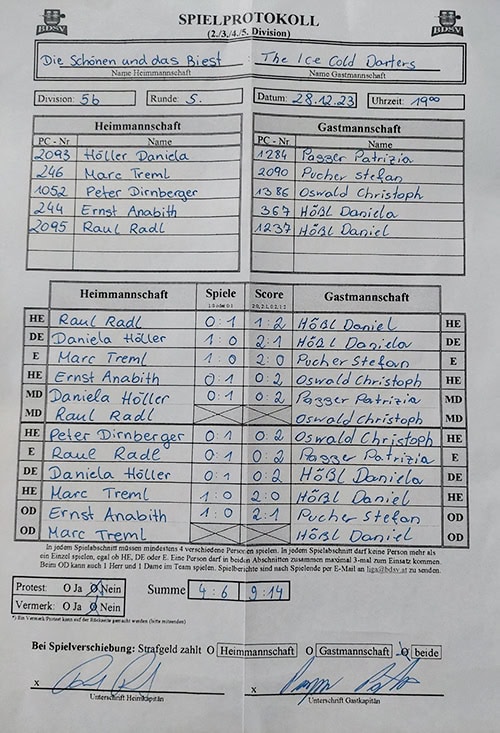 BDSV SPIELPROTOKOLL BDSV
(2./3./4./5. Division)
Die Schönen und das Biest : The Ice Cold Darters
Name Heimmannschaft Name Gastmannschaft
Division: 5b Runde: 5. Datum: 28.12.23 Uhrzeit: 19⁰⁰
Heimmannschaft Gastmannschaft
PC - Nr. Name PC - Nr. Name
2093 Höller Daniela 1284 Pagger Patrizia
246 Marc Treml 2090 Pucher Stefan
1052 Peter Dirnberger 1386 Oswald Christoph
244 Ernst Anabith 367 Hößl Daniela
2095 Raul Radl 1237 Hößl Daniel
Heimmannschaft Spiele Score Gastmannschaft
HE Raul Radl 0:1 1:2 Hößl Daniel HE
DE Daniela Höller 1:0 2:1 Hößl Daniela DE
E Marc Treml 1:0 2:0 Pucher Stefan E
HE Ernst Anabith 0:1 0:2 Oswald Christoph HE
MD Daniela Höller 0:1 0:2 Pagger Patrizia MD
MD Raul Radl Oswald Christoph MD
HE Peter Dirnberger 0:1 0:2 Oswald Christoph HE
E Raul Radl 0:1 0:2 Pagger Patrizia E
DE Daniela Höller 0:1 0:2 Hößl Daniela DE
HE Marc Treml 1:0 2:0 Hößl Daniel HE
OD Ernst Anabith 1:0 2:1 Pucher Stefan OD
OD Marc Treml Hößl Daniel OD
In jedem Spielabschnitt müssen mindestens 4 verschiedene Personen spielen. In jedem Spielabschnitt darf keine Person mehr als
ein Einzel spielen, egal ob HE, DE oder E. Eine Person darf in beiden Abschnitten zusammen maximal 3-mal zum Einsatz kommen.
Beim OD kann auch 1 Herr und 1 Dame im Team spielen. Spielberichte sind nach Spielende per E-Mail an liga@bdsv.at zu senden.
Protest: O Ja O Nein Summe 4:6 9:14
Vermerk: O Ja O Nein
*) Ein Vermerk Protest kann auf der Rückseite gemacht werden (bitte mitsenden)
Bei Spielverschiebung: Strafgeld zahlt O Heimmannschaft O Gastmannschaft O beide
x x
Unterschrift Heimkapitän Unterschrift Gastkapitän